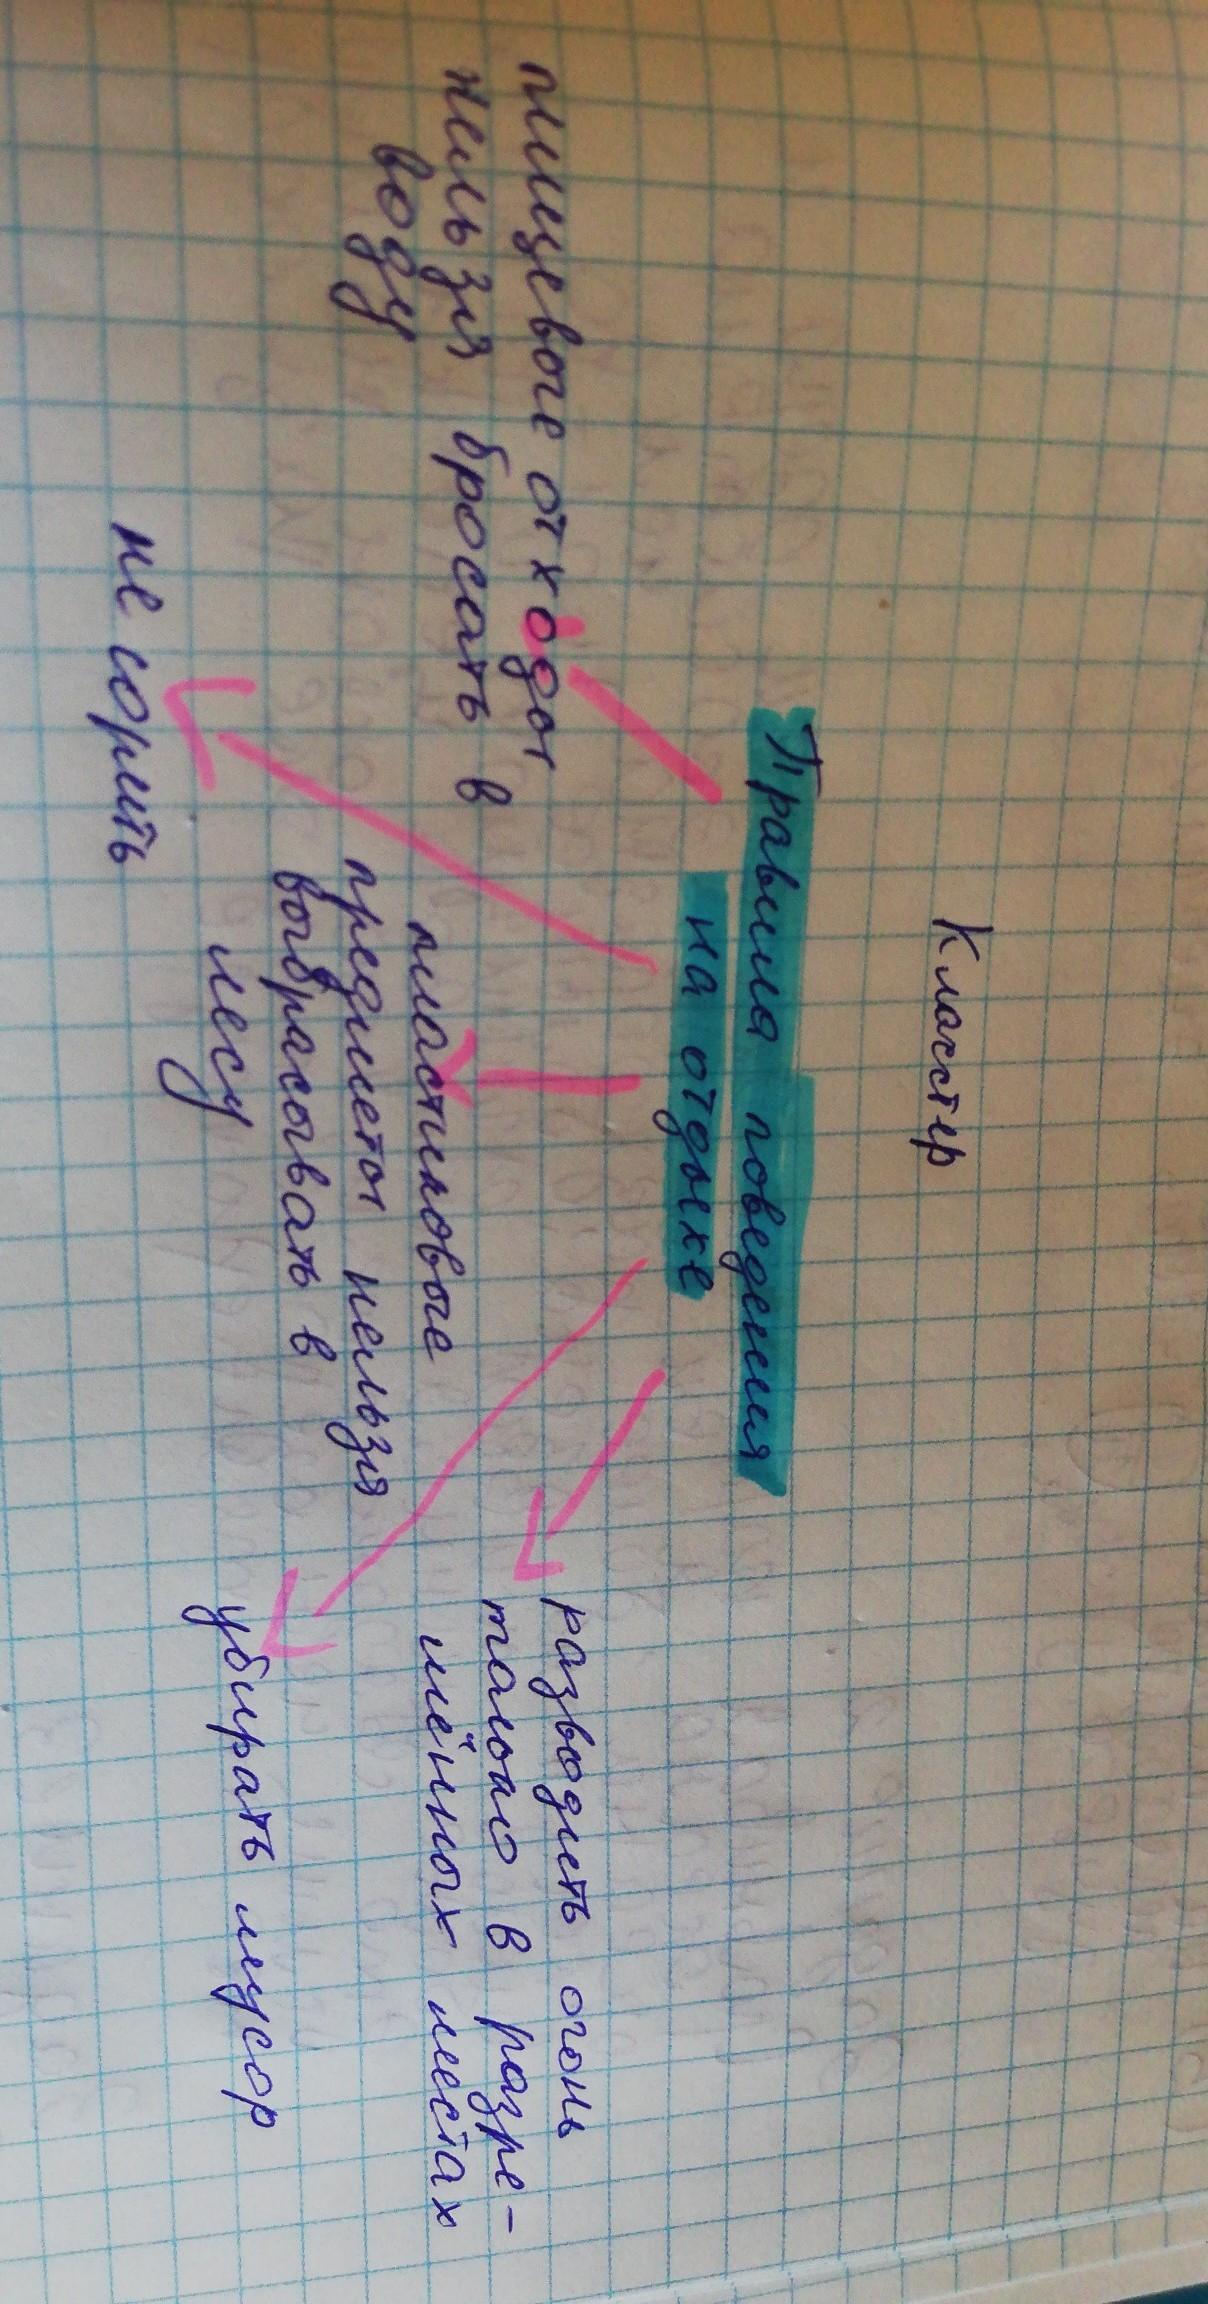 Кластер
Правила поведения
на отдыхе
пищевые отходы
нельзя бросать в
воду
не сорить
пластиковые
предметы нельзя
выбрасывать в
лесу
разводить огонь
только в разре-
шённых местах
убирать мусор